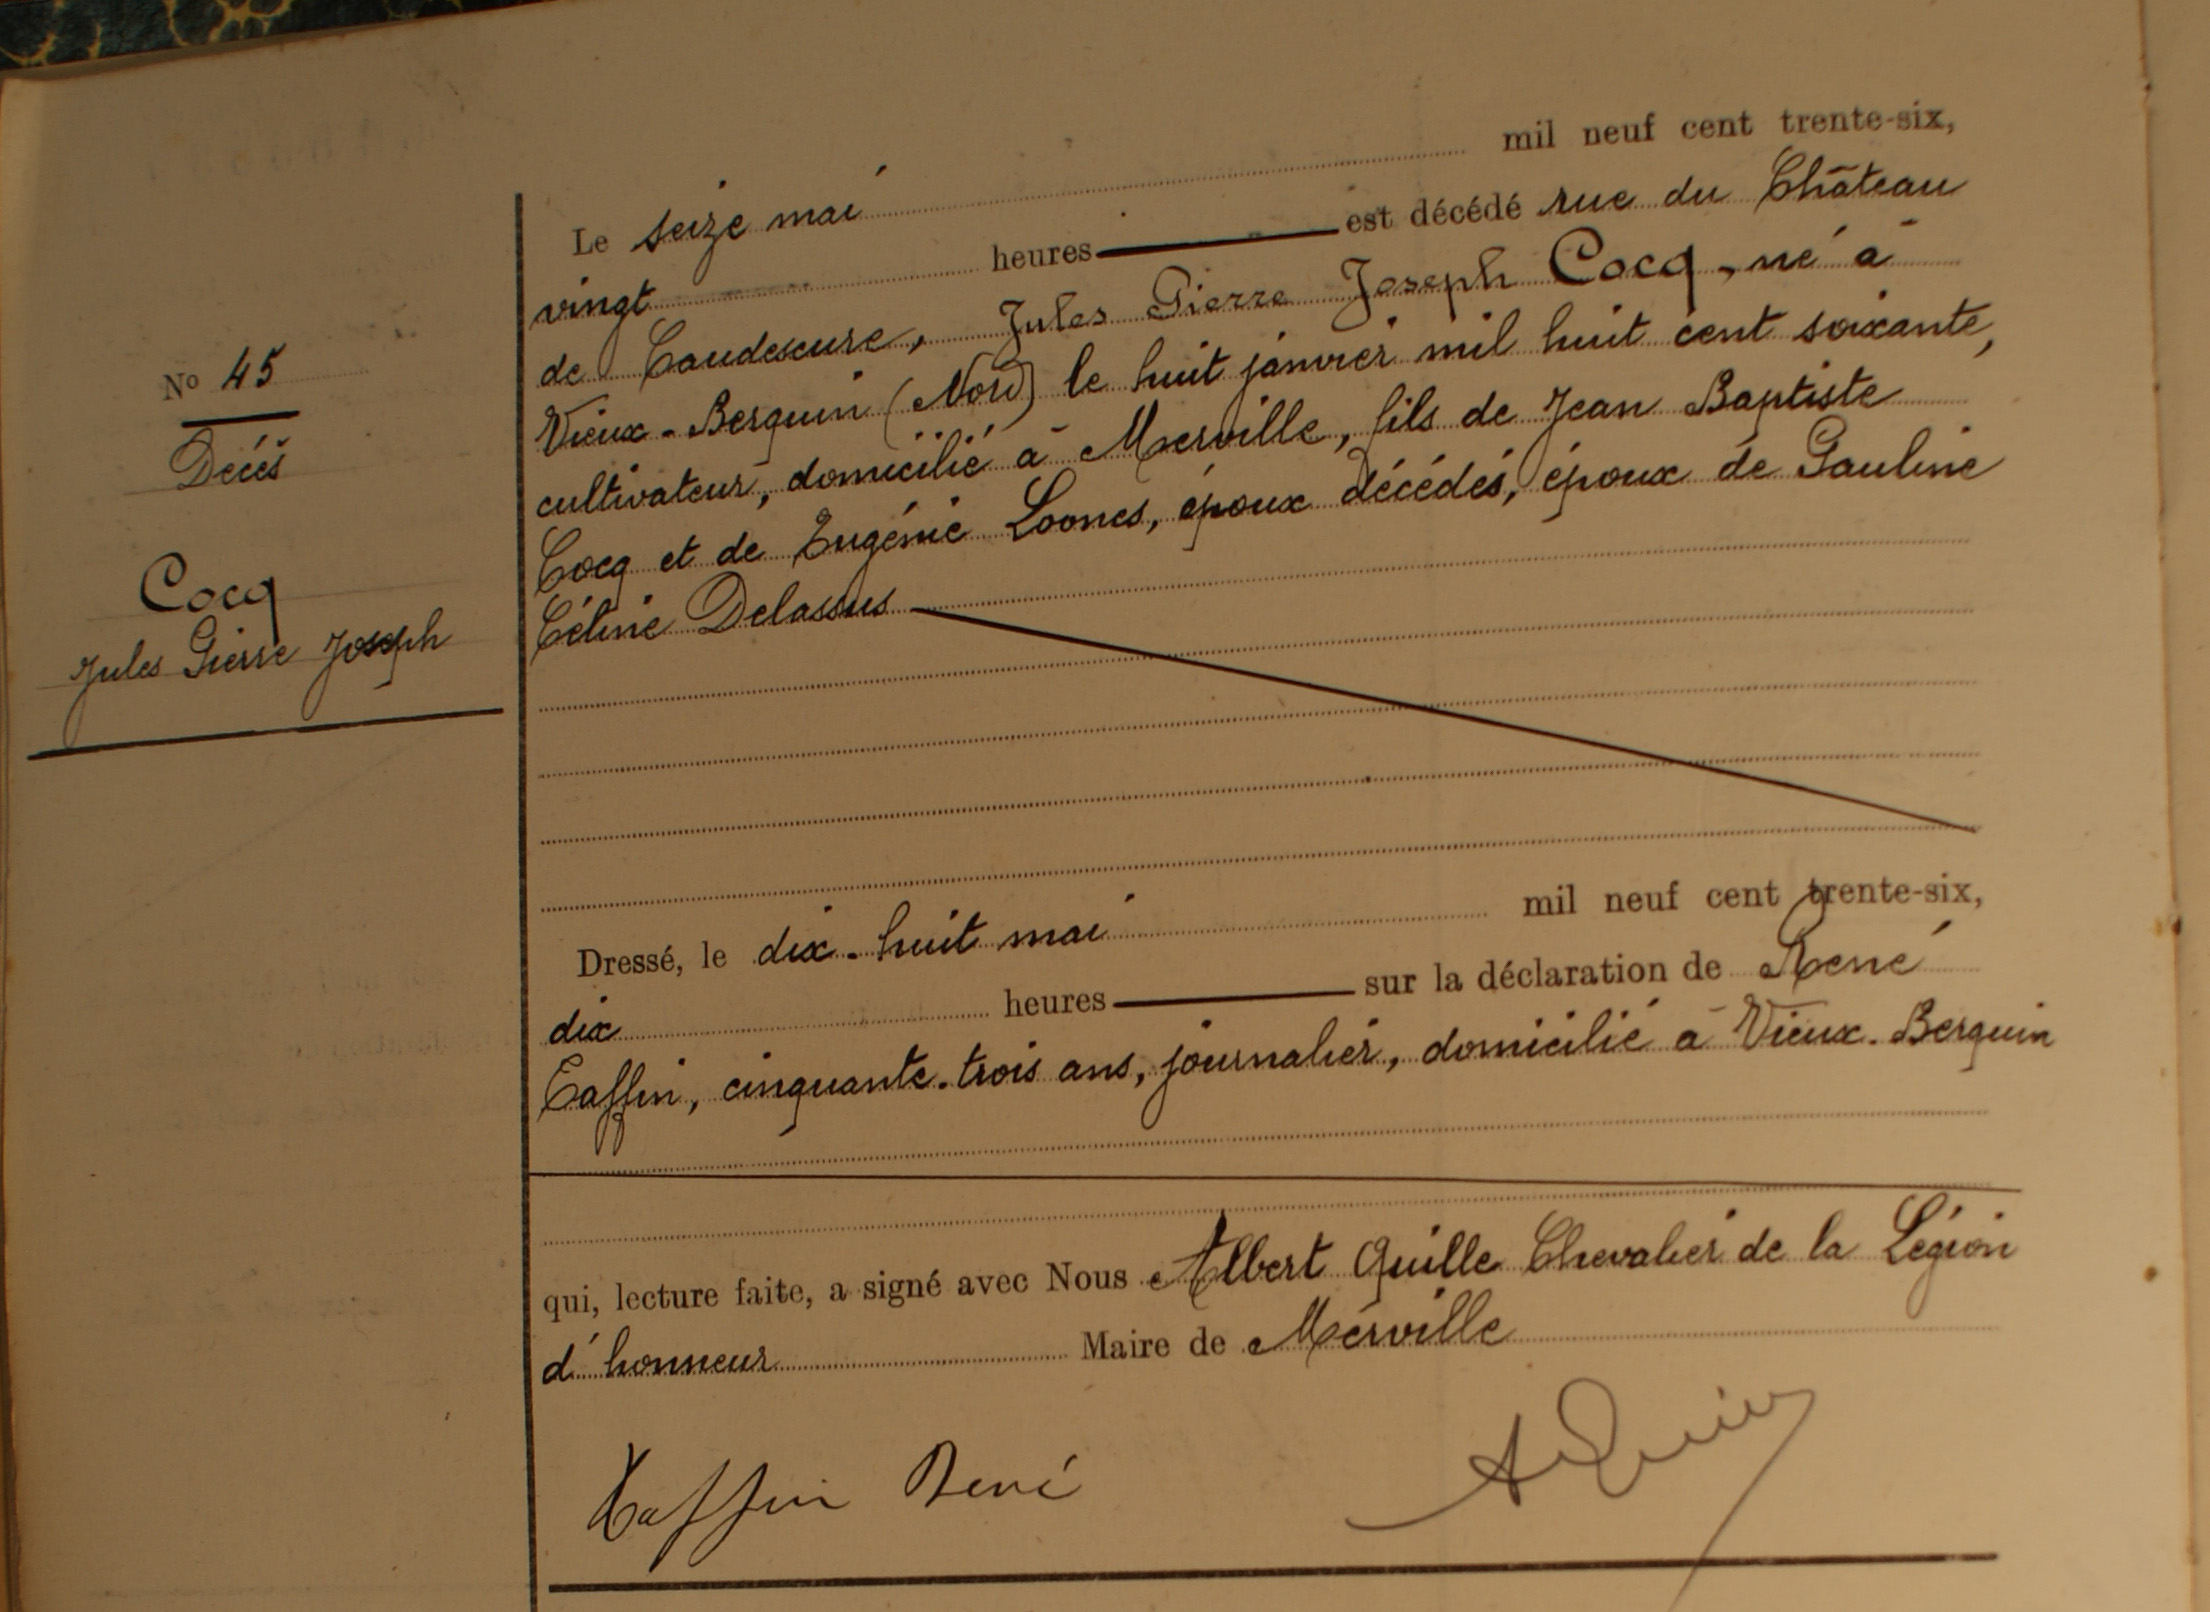 N° 45
Décès
Cocq
Jules Pierre Joseph
Le seize mai mil neuf cent trente-six,
vingt heures est décédé rue du Château
de Caudescure, Jules Pierre Joseph Cocq, né à
Vieux-Berquin (Nord) le huit janvier mil huit cent soixante,
cultivateur, domicilié à Merville, fils de Jean Baptiste
Cocq et de Eugénie Loones, époux décédés, époux de Pauline
Céline Delassus
Dressé, le dix-huit mai mil neuf cent trente-six,
dix heures sur la déclaration de René
Taffin, cinquante-trois ans, journalier, domicilié à Vieux-Berquin
qui, lecture faite, a signé avec Nous Albert Quille Chevalier de la Légion
d'honneur Maire de Merville
Taffin René